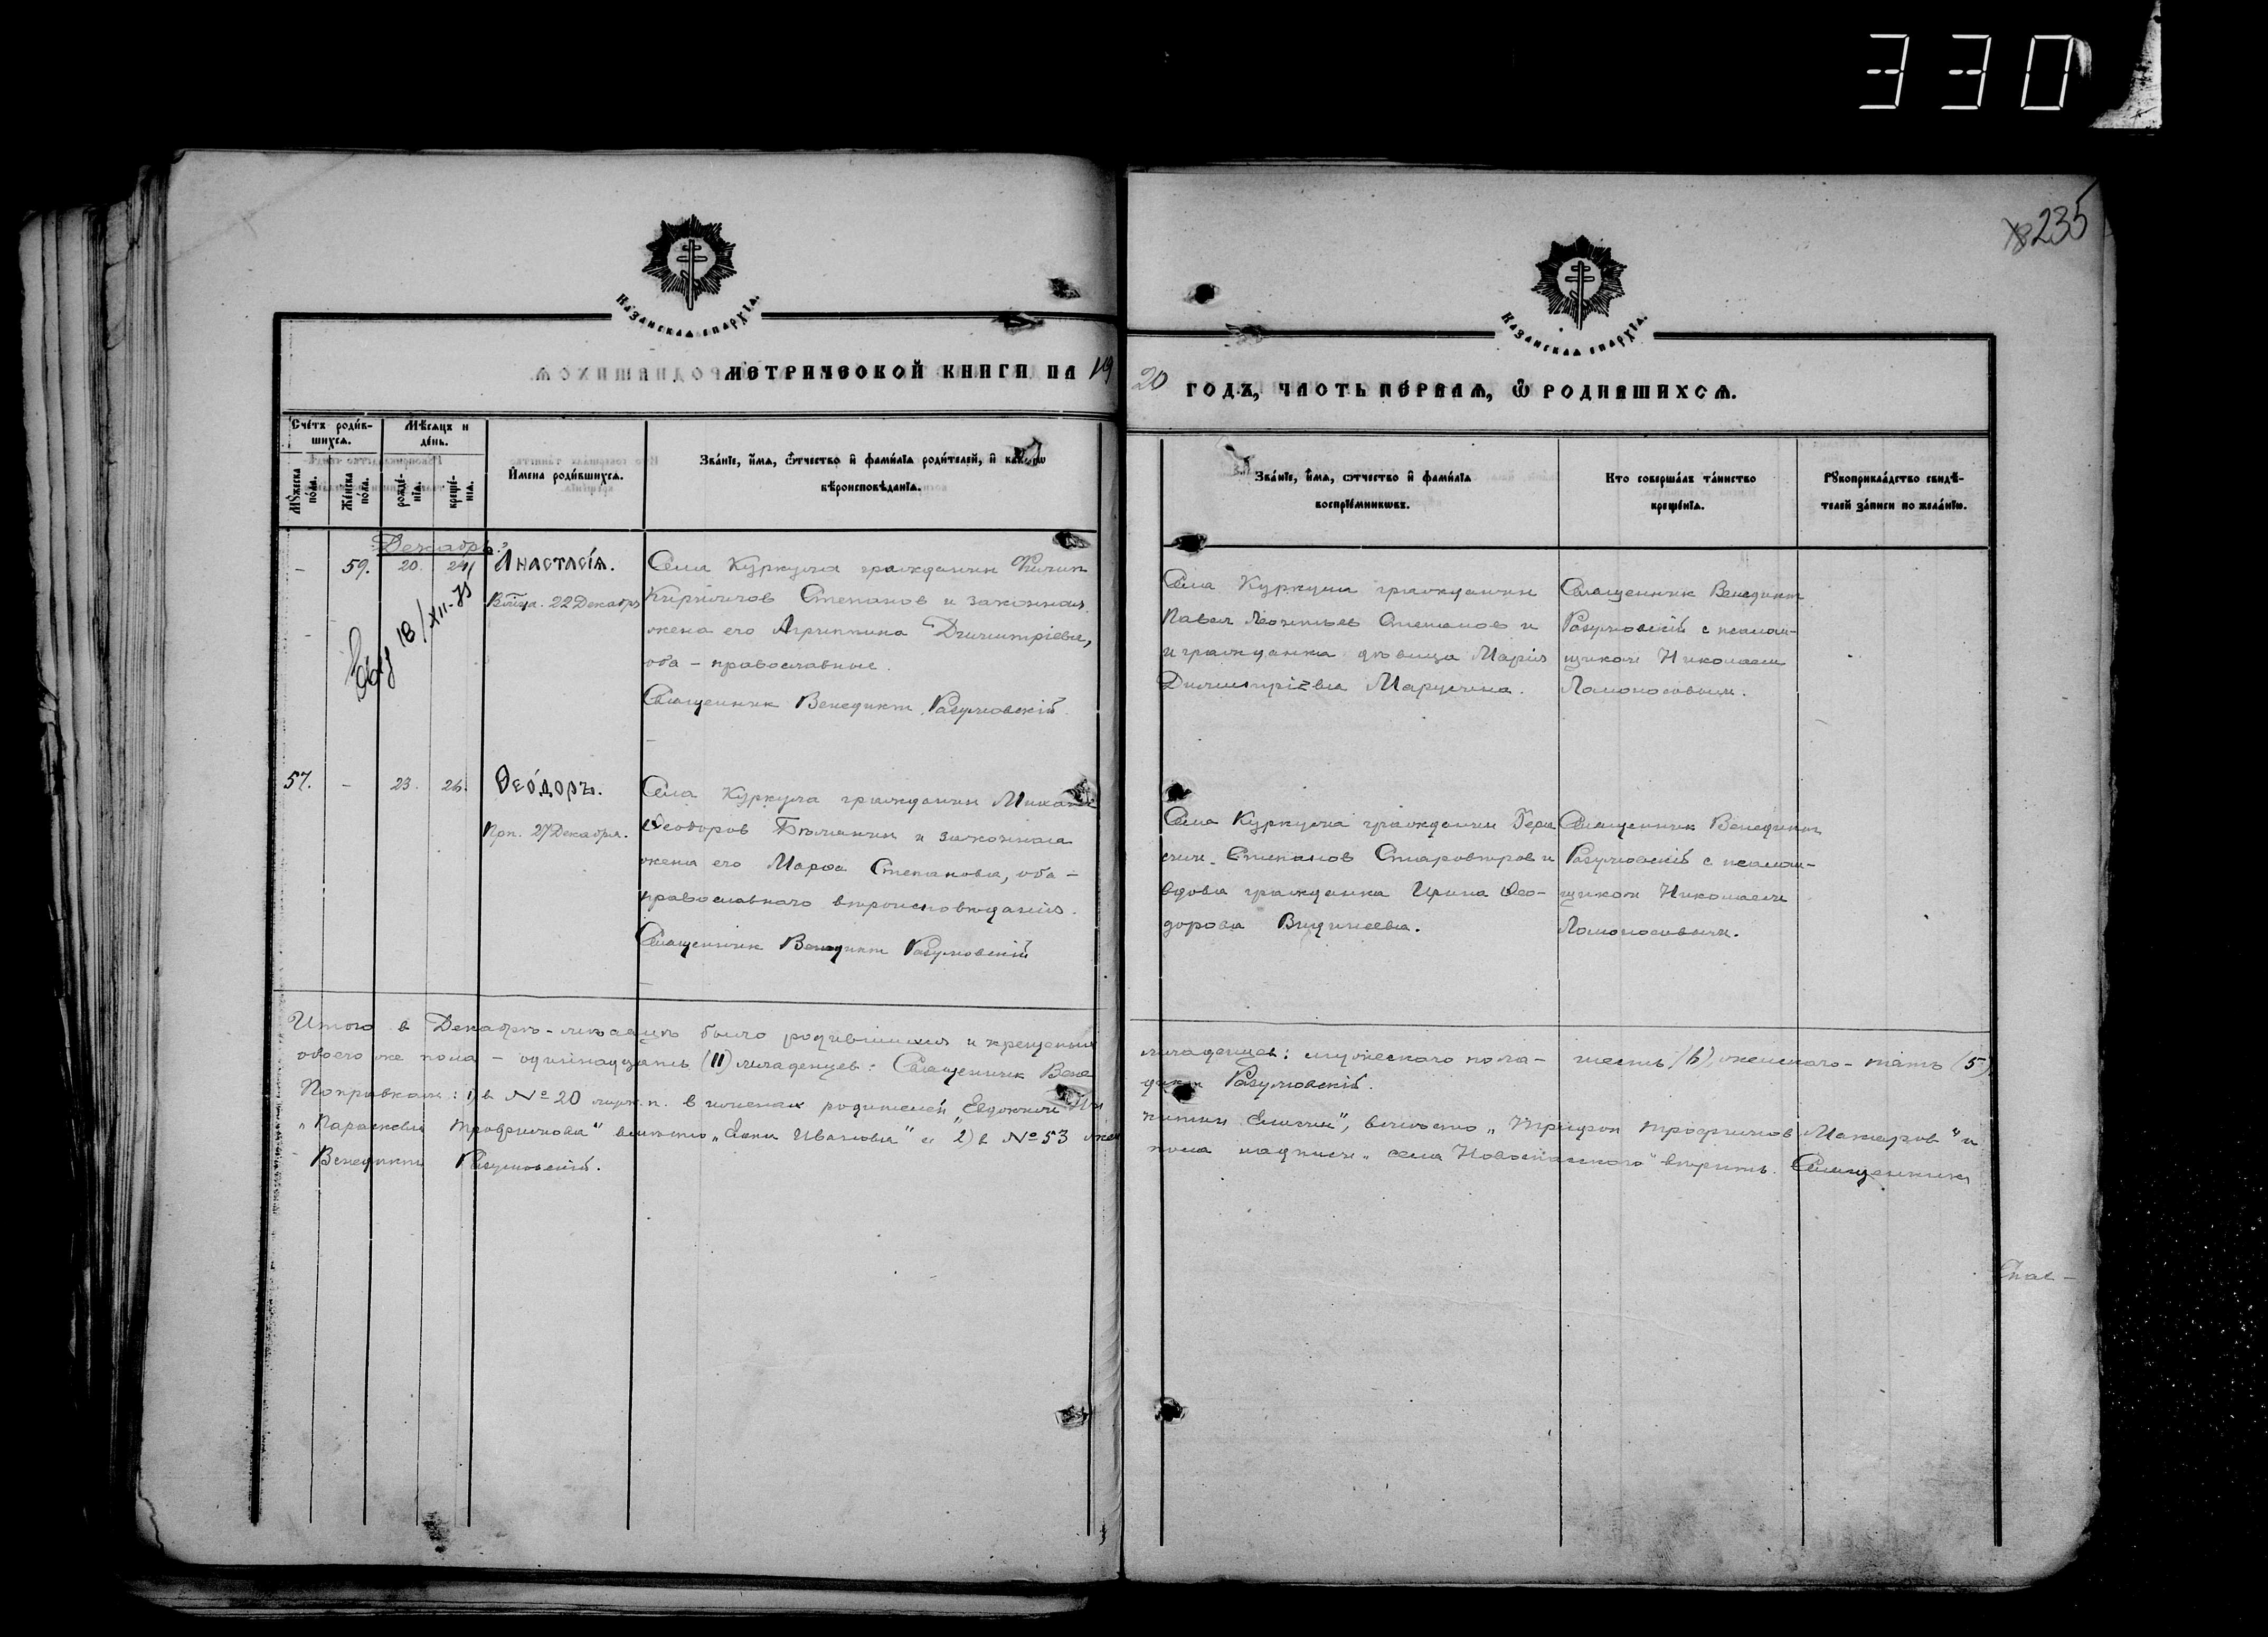 330
235
Казанская епархїа.
Казанская епархїа.
МЕТРИЧЕСКОЙ КНИГИ НА 19
20 ГОДЪ, ЧАСТЬ ПЕ́РВАѦ, Ѡ҆ РОДИВШИХСѦ.
Сче́тъ роди́в-
шихсѧ.
Мѣ́сѧцъ и
де́нь.
Мꙋ́жеска
по́ла.
Же́нска
по́ла.
рожде́-
нїѧ.
креще́-
нїѧ.
И҆мена роди́вшихсѧ.
Зва́нїе, и҆́мѧ, ѻ҆́тчество и҆ фами́лїѧ роди́телей, и҆
вѣроисповѣ́данїѧ.
Зва́нїе, и҆́мѧ, ѻ҆тчество и҆ фами́лїѧ
воспрїе́мникѡвъ.
Кто соверша́лъ та́инство
креще́нїѧ.
Рꙋкоприкла́дство свидѣ́-
телей за́писи по жела́нїю.
Декабрь.
- 59. 20. 24 Анастасі́я.
22 Декабря
18/XII-75
Села Куркуля гражданин Филип
Кириллов Степанов и законная
жена его Агриппина Димитріева,
оба - православные.
Священник Венедикт Разумовскій
Села Куркуля гражданин
Павел Леонтьев Степанов и
и гражданка дѣвица Марія
Димитріева Марусина.
Священник Венедикт
Разумовскій с псалом-
щиком Николаем
Ломоносовым.
57. - 23. 26. Ѳео́доръ.
Прп. 27 Декабря.
Села Куркуля гражданин Михаил
Ѳеодоров Бѣлянин и законная
жена его Марѳа Степанова, оба -
православнаго вѣроисповѣданія.
Священник Венедикт Разумовскій
Села Куркуля гражданин Гера
сим Степанов Старовѣров и
вдова гражданка Ирина Ѳео-
дорова Видинеева.
Священник Венедикт
Разумовскій с псалом-
щиком Николаем
Ломоносовым.
Итого в Декабрѣ-мѣсяцѣ было родившихся и крещеных
обоего же пола - одиннадцать (11) младенцев:
младенцев: мужескаго пола - шесть (6), женскаго - пять (5).
Священник Вене
дикт Разумовскій.
Поправкам: 1) в № 20 муж. п. в именах родителей
"Параскева Трофимова" вмѣсто "Анны Иванова" и 2) в № 53 жен
вмѣсто "Трифон Трофимов Мажаров" и
пола надписи "села Новоспасскаго" вѣрить. Священник
Венедикт Разумовскій.
Спас-